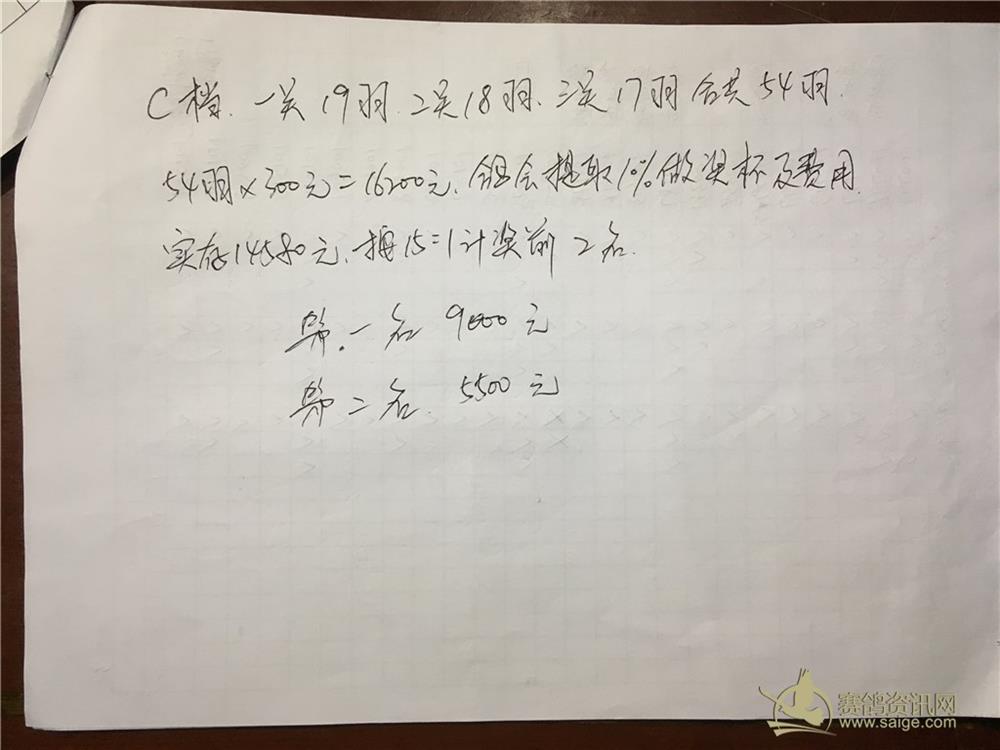 C档、一关19羽、二关18羽、三关17羽合共54羽.
54羽×300元=16200元、组会提取10%做奖杯及费用.
实存14580元、按15=1计奖前2名.
第.一名 9000元
第二名. 5500元
赛鸽资讯网
www.saige.com